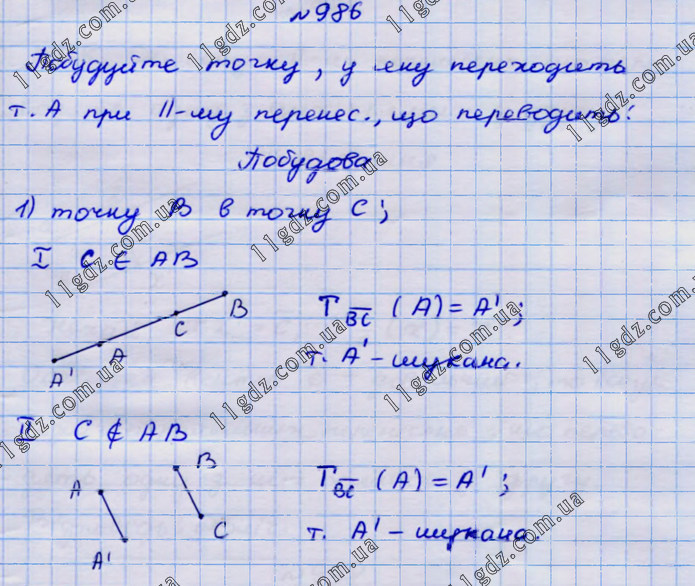 №986
Побудуйте точку, у яку переходить
т. А при ІІ-му перенес., що переводить:
Побудова
1) точку В в точку С;
I C ∈ AB
B
C
A
A'
T BC (A) = A';
т. А' - шукана.
II C ∉ AB
B
A
C
A'
T BC (A) = A';
т. А' - шукана.
11gdz.com.ua